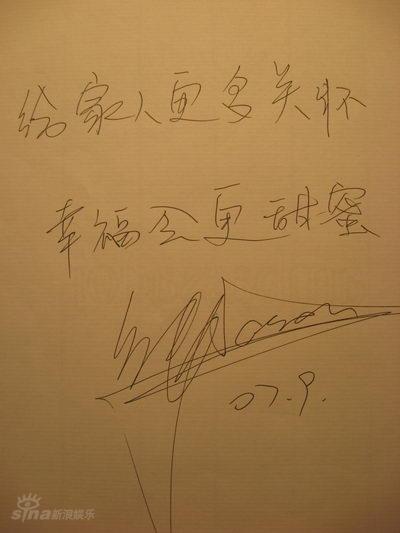 给家人更多关怀
幸福会更甜蜜
07.9.
sina新浪娱乐